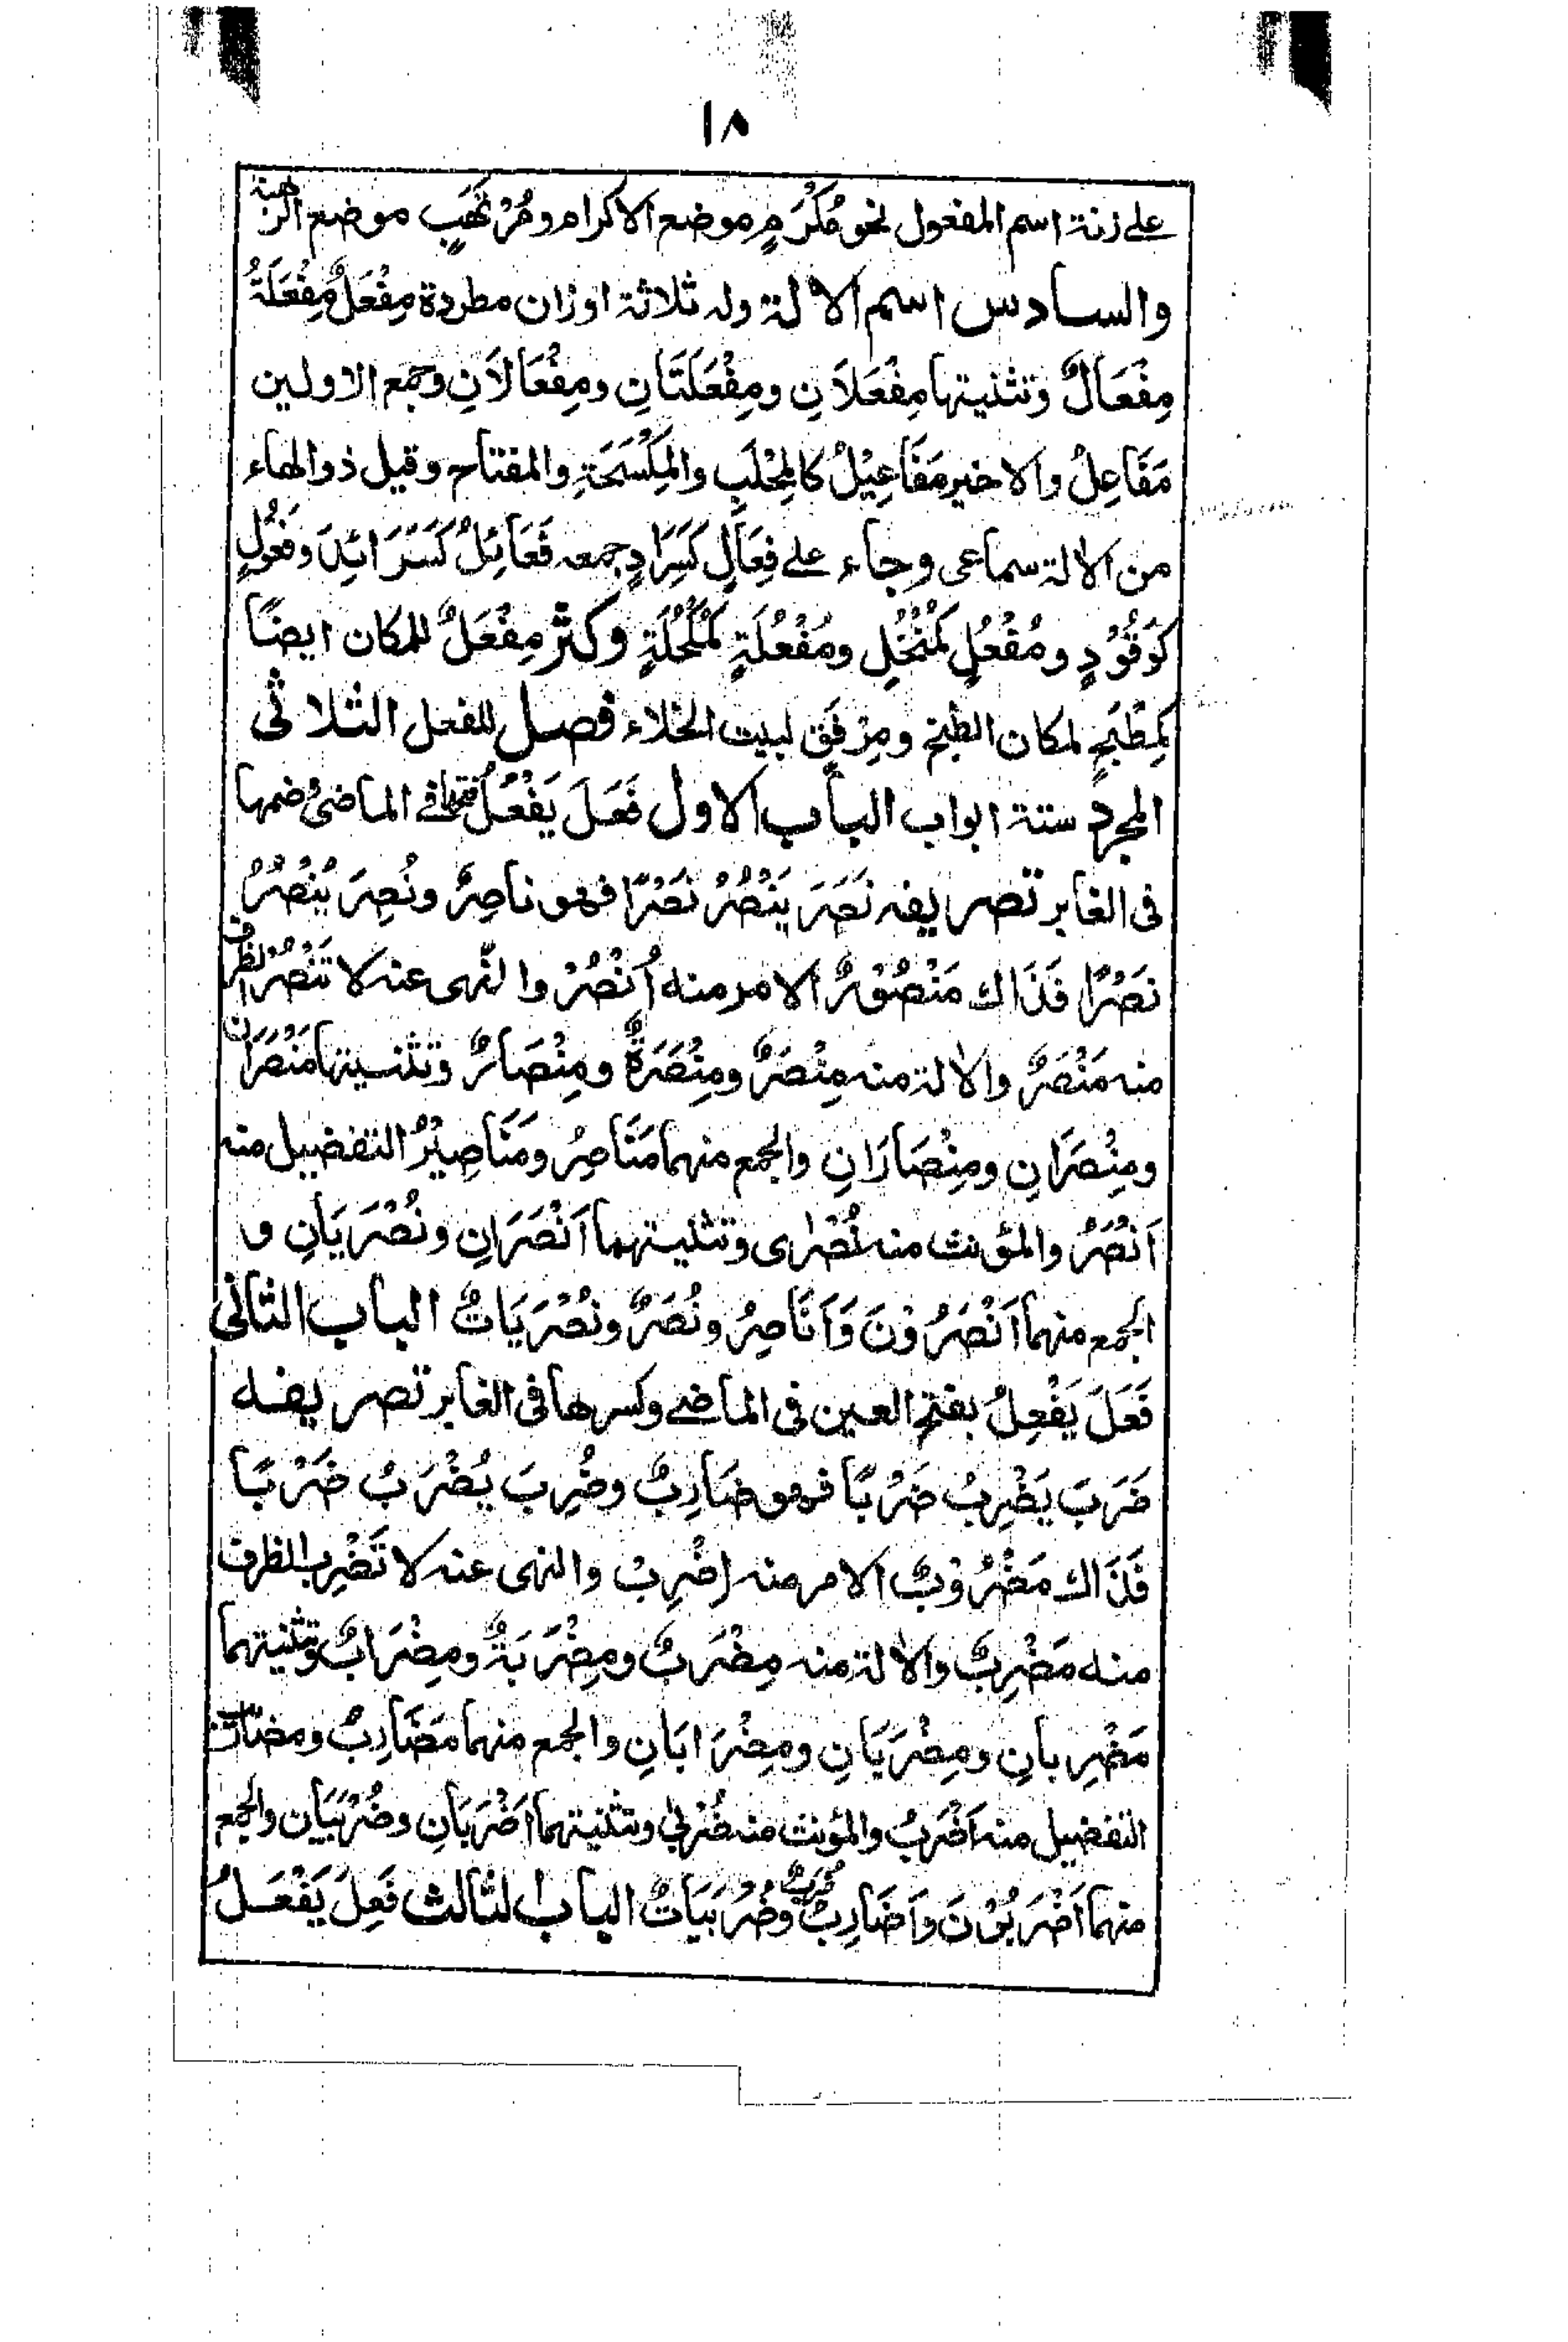 ١٨
على زنة اسم المفعول نحو مُكْرَمٍ موضع الاكرام ومُرْتَهَبٍ موضع الرهبة
والسادس اسم الالة وله ثلاثة اوزان مطردة مِفْعَلٌ مِفْعَلَةٌ
مِفْعَالٌ وتثنيتها مِفْعَلَانِ ومِفْعَلَتَانِ ومِفْعَالَانِ وجمع الاولين
مَفَاعِلُ والاخير مَفَاعِيْلُ كالمِحْلَبِ والمِكْسَحَةِ والمفتاح وقيل ذو الهاء
من الالة سماعى وجاء على فِعَالٍ كَسِرَادٍ جمعه فَعَائِلُ كَسَرَائِدَ وفَعُوْلٍ
كَوَقُوْدٍ ومُفْعُلٍ كَمُنْخُلٍ ومُفْعُلَةٍ كَمُكْحُلَةٍ وكثر مِفْعَلٌ للمكان ايضًا
كَمِطْبَخٍ لمكان الطبخ ومِرْفَقٍ لبيت الخلاء فصل للفعل الثلاثى
المجرد ستة ابواب الباب الاول فَعَلَ يَفْعُلُ فتحها فى الماضى وضمها
فى الغابر تصريفه نَصَرَ يَنْصُرُ نَصْرًا فهو ناصِرٌ ونُصِرَ يُنْصَرُ
نَصْرًا فَذَاك مَنْصُوْرٌ الامر منه اُنْصُرْ والنَّهى عنه لا تَنْصُرْ الظرف
منه مَنْصَرٌ والالة منه مِنْصَرٌ ومِنْصَرَةٌ ومِنْصَارٌ وتثنيتها مَنْصَرَانِ
ومِنْصَرَانِ ومِنْصَارَانِ والجمع منهما مَنَاصِرُ ومَنَاصِيْرُ التفضيل منه
اَنْصَرُ والمؤنث منه نُصْرٰى وتثنيتهما اَنْصَرَانِ ونُصْرَيَانِ و
الجمع منهما اَنْصَرُوْنَ وَاَنَاصِرُ ونُصَرٌ ونُصْرَيَاتٌ الباب الثانى
فَعَلَ يَفْعِلُ بفتح العين فى الماضى وكسرها فى الغابر تصريفه
ضَرَبَ يَضْرِبُ ضَرْبًا فهو ضَارِبٌ وضُرِبَ يُضْرَبُ ضَرْبًا
فَذَاك مَضْرُوْبٌ الامر منه اِضْرِبْ والنهى عنه لا تَضْرِبْ الظرف
منه مَضْرِبٌ والالة منه مِضْرَبٌ ومِضْرَبَةٌ ومِضْرَابٌ وتثنيتهما
مَضْرِبانِ ومِضْرَبَانِ ومِضْرَابَانِ والجمع منهما مَضَارِبُ ومضاريب
التفضيل منه اَضْرَبُ والمؤنث منه ضُرْبٰى وتثنيتهما اَضْرَبَانِ وضُرْبَيَانِ والجمع
منهما اَضْرَبُوْنَ وَاَضَارِبُ وضُرَبٌ وضُرْبَيَاتٌ الباب الثالث فَعِلَ يَفْعَلُ